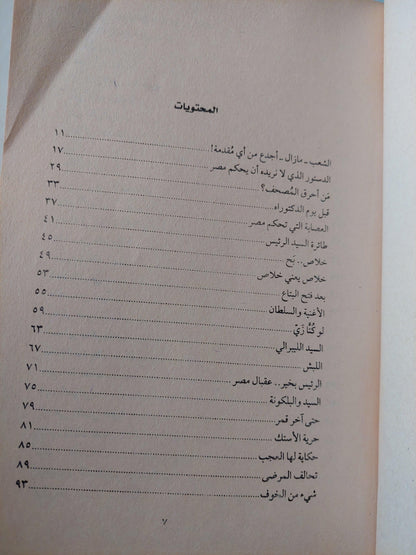 المحتويات
الشعب ـ مازال ـ أجدع من أي مُقدمة! ١١
الدستور الذي لا نريده أن يحكم مصر ١٧
مَن أحرق المُصحف؟ ٢٩
قبل يوم الدكتوراه ٣٣
العصابة التي تحكم مصر ٣٧
طائرة السيد الرئيس ٤١
خلاص.. بَح ٤٥
خلاص يعني خلاص ٤٩
بعد فتح البتاع ٥٣
الأغنية والسلطان ٥٥
لو كُنَّا زَيّ ٥٩
السيد الليبرالي ٦٣
اللبش ٦٧
الرئيس بخير.. عقبال مصر ٧١
السيد والبلكونة ٧٥
حتى آخر قمر ٧٩
حرية الأستك ٨١
حكاية لها العجب ٨٥
تحالف المرضى ٨٩
شيء من الخوف ٩٣
٧